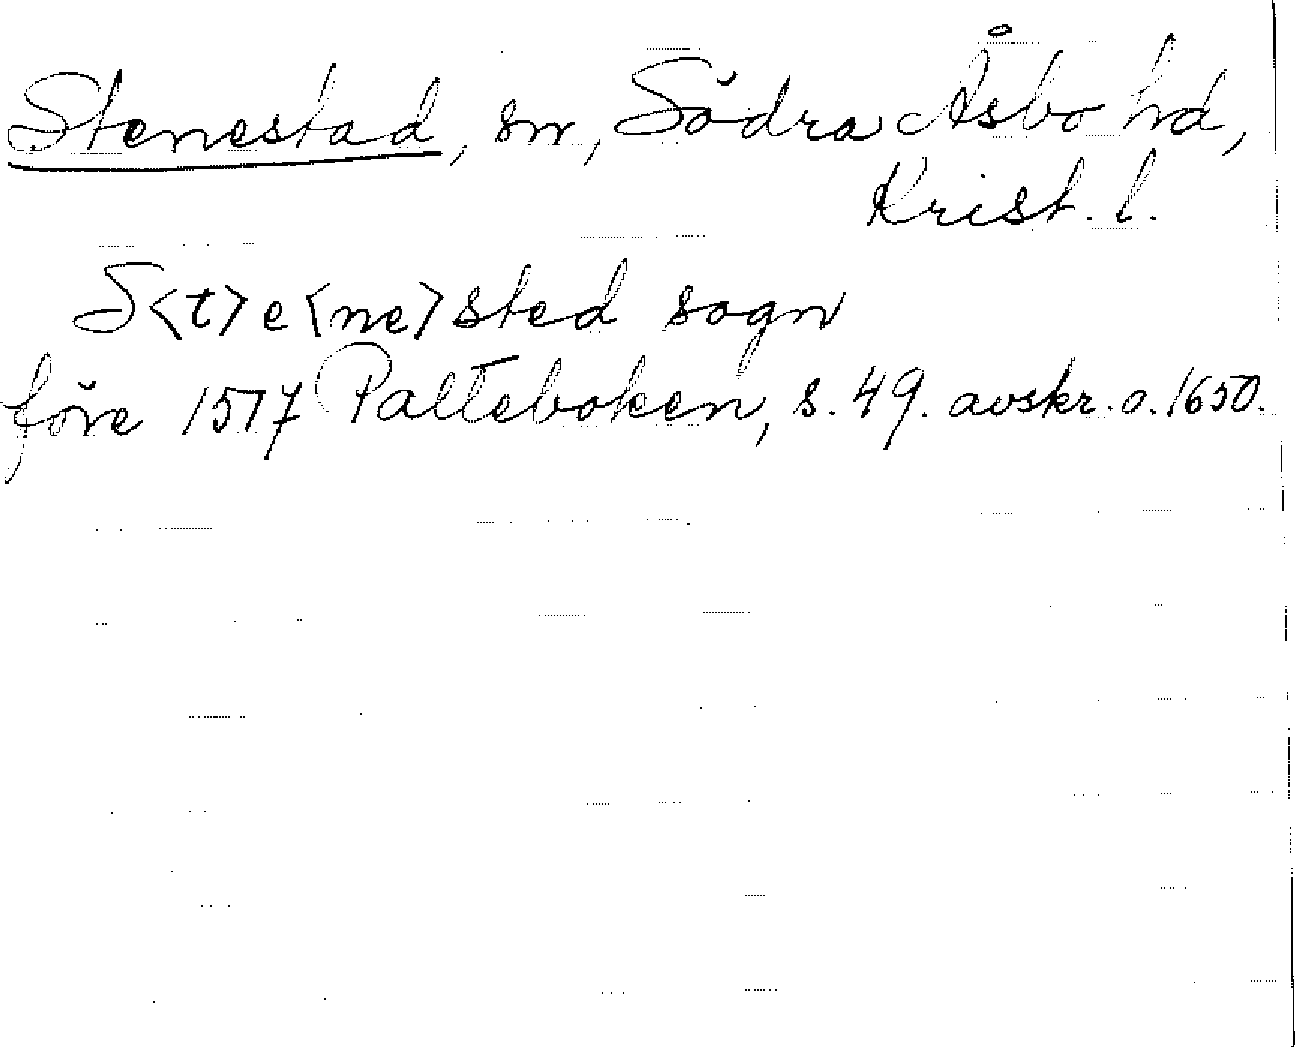 Stenestad, sn, Södra Åsbo hd,
Krist. l.
S<t>e<ne>sted sogn
före 1517 Palteboken, s. 49. avskr. o. 1650.